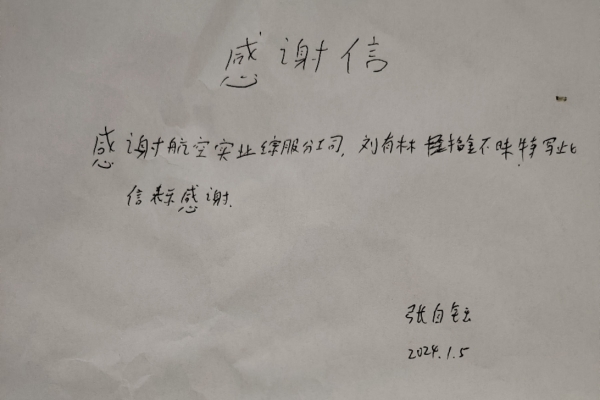 感谢信
感谢航空实业综服分公司,刘有林 拾金不昧特写此
信表示感谢.
张自
2024.1.5